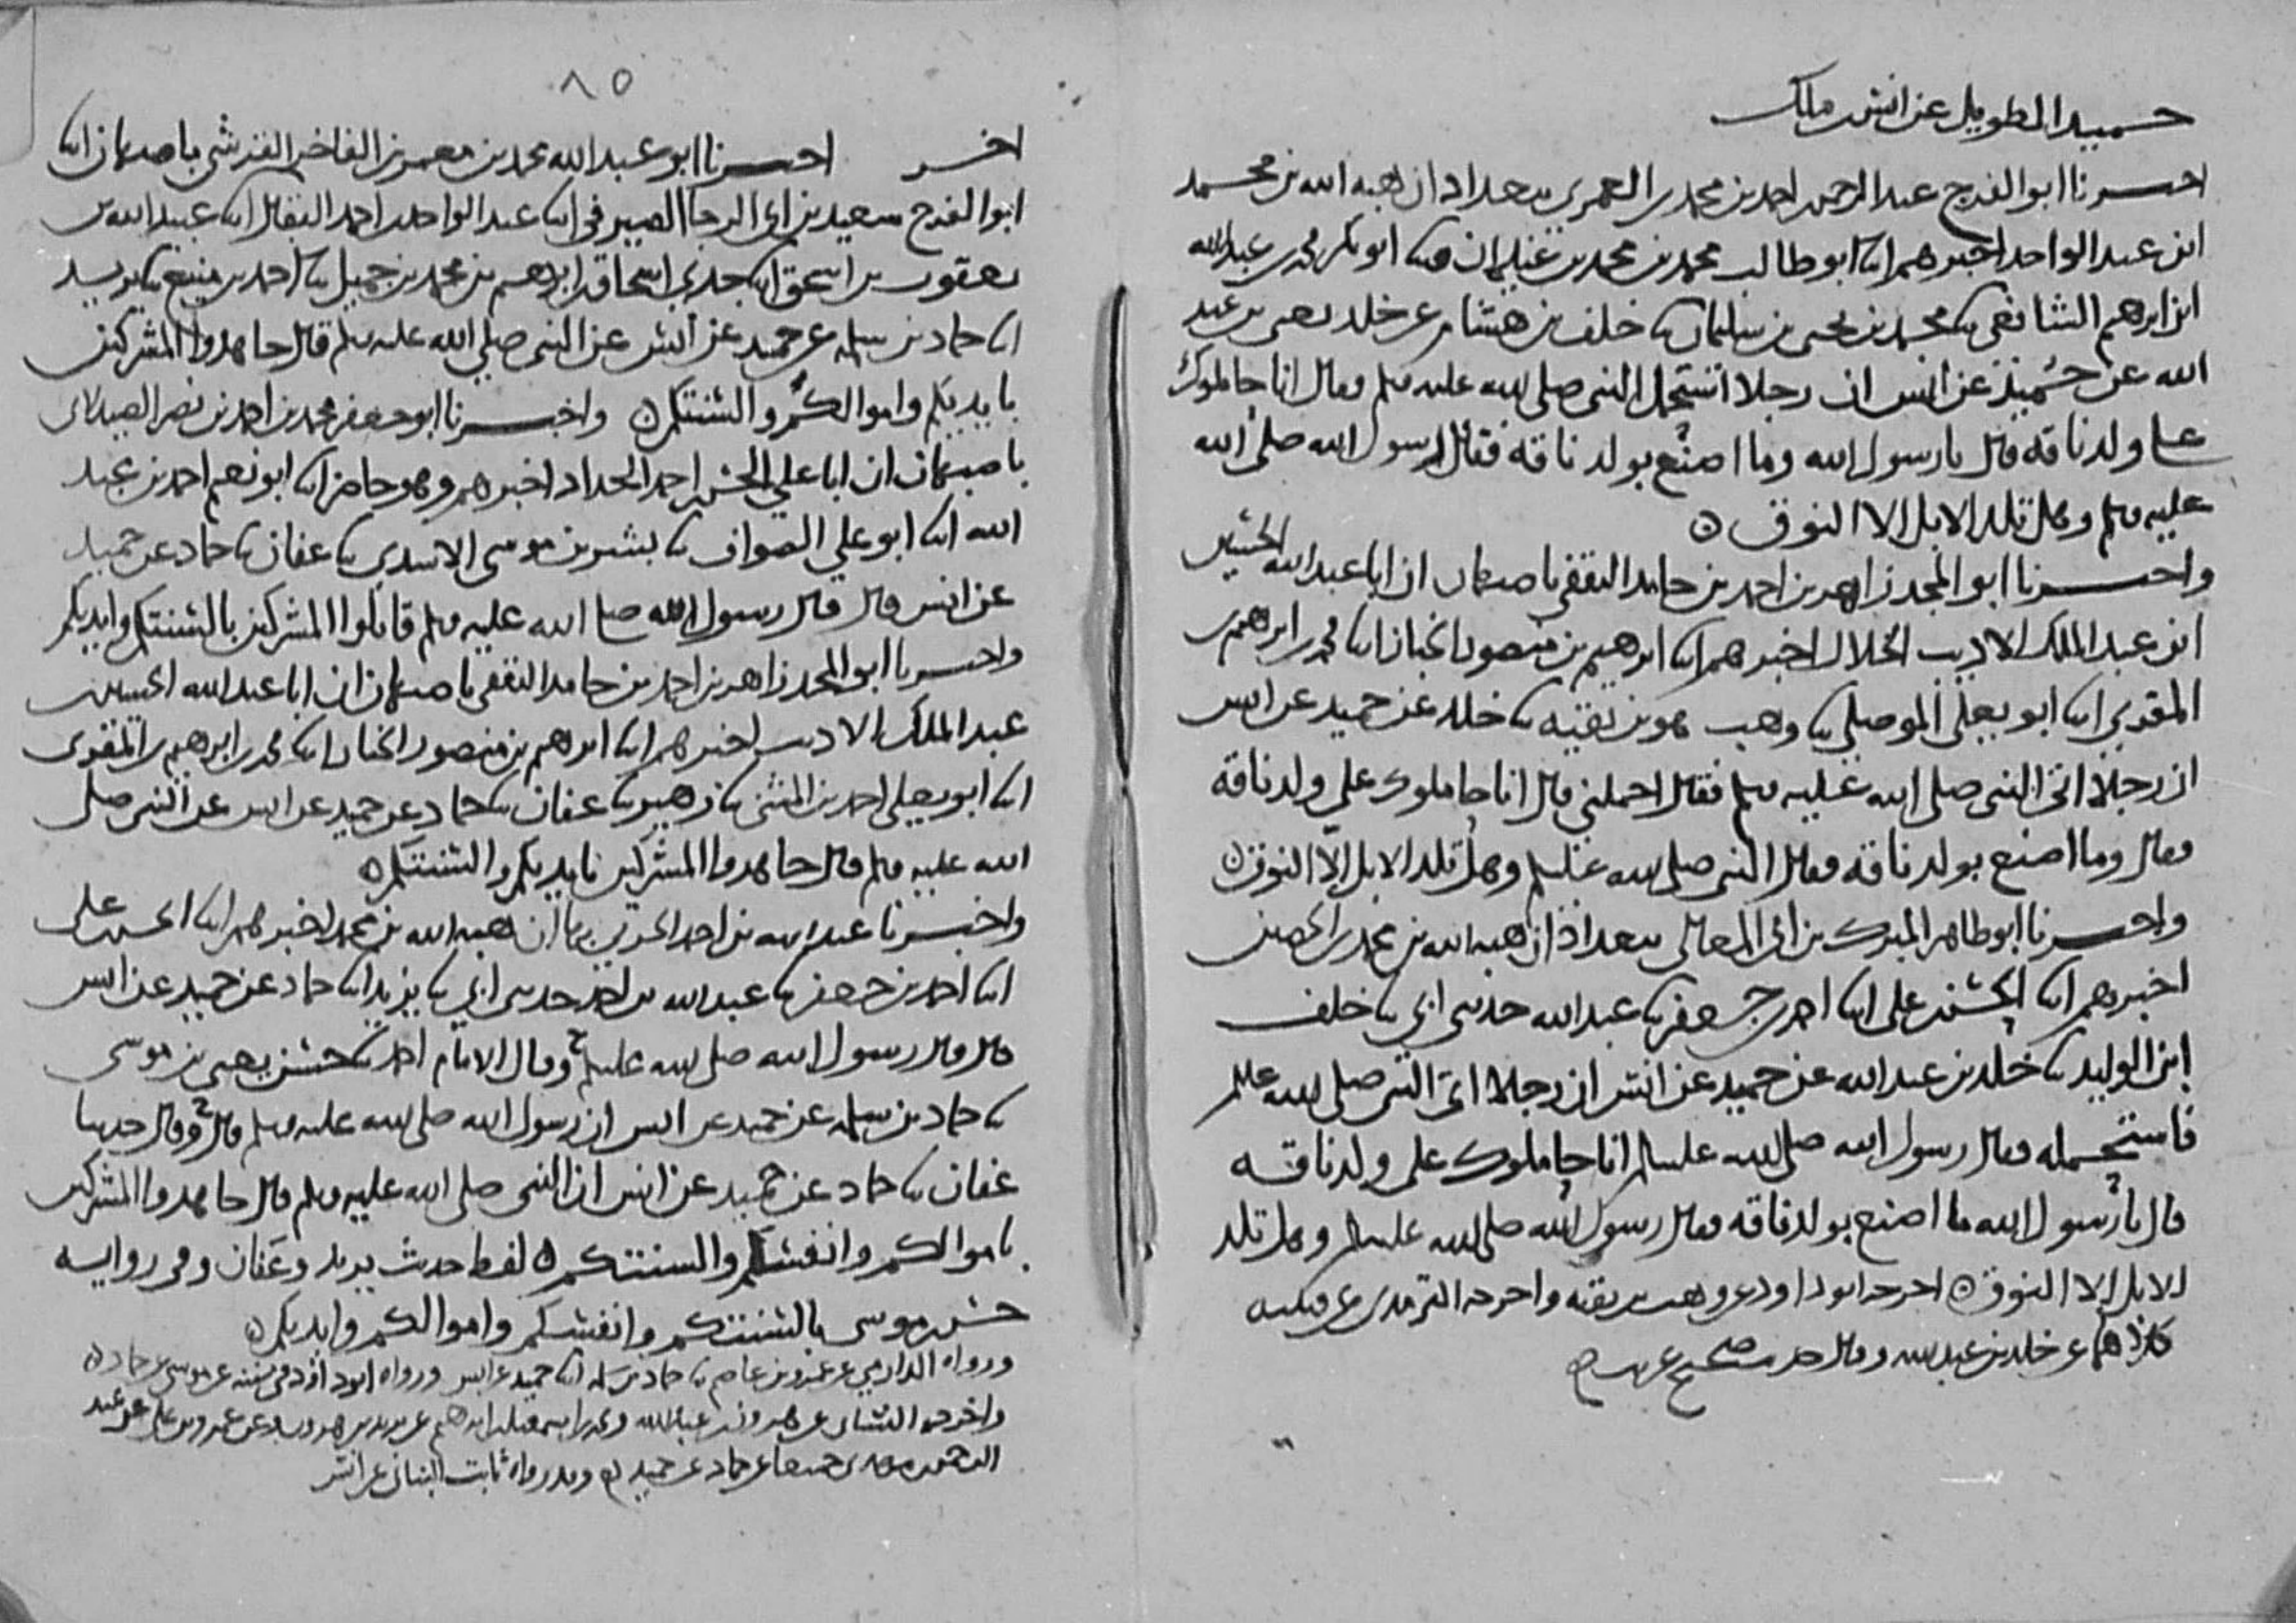 حميد الطويل عن انس بن ملك
اخبرنا ابو الفرج عبد الرحمن بن احمد بن محمد بن العمري ببغداد ان هبه الله بن محمد
ابن عبد الواحد اخبرهم ابنا ابو طالب محمد بن محمد بن غيلان ابنا ابو بكر محمد بن عبد الله
ابن ابرهيم الشافعي ثنا محمد بن يحيى بن سليمان ثنا خلف بن هشام ثنا خلد يعني بن عبد
الله عن حميد عن انس ان رجلا استحمل النبي صلى الله عليه وسلم وقال انا حاملوك
على ولد ناقه قال يا رسول الله وما اصنع بولد ناقه فقال رسول الله صلى الله
عليه وسلم وهل تلد الابل الا النوق ٥
واخبرنا ابو المجد زاهر بن احمد بن حامد الثقفي باصبهان ان ابا عبد الله الحسين
ابن عبد الملك الاديب الخلال اخبرهم ابنا ابرهيم بن منصور الخباز ابنا محمد بن ابرهيم بن
المقري ابنا ابو يعلى الموصلي ثنا وهب هو بن بقيه ثنا خلد عن حميد عن انس
ان رجلا اتى النبي صلى الله عليه وسلم فقال احملني قال انا حاملوك على ولد ناقة
وقال وما اصنع بولد ناقه فقال النبي صلى الله عليه وسلم وهل تلد الابل الا النوق ٥
واخبرنا ابو طاهر المبرك بن ابي المعالي ببغداد ان هبه الله بن محمد بن الحصين
اخبرهم ابنا الحسن بن علي ابنا احمد بن جعفر ثنا عبد الله حدثني ابي ثنا خلف
ابن الوليد ثنا خلد بن عبد الله عن حميد عن انس ان رجلا اتى النبي صلى الله عليه وسلم
فاستحمله فقال رسول الله صلى الله عليه وسلم انا حاملوك على ولد ناقه
قال يا رسول الله ما اصنع بولد ناقه فقال رسول الله صلى الله عليه وسلم وهل تلد
الابل الا النوق ٥ اخرجه ابو داود عن وهب بن بقيه واخرجه الترمذي عن قتيبه
كلاهما عن خلد بن عبد الله وقال حديث صحيح غريب
٨٥
اخر اخبرنا ابو عبد الله محمد بن معمر بن الفاخر القرشي باصبهان ابنا
ابو الفرج سعيد بن ابي الرجا الصيرفي ابنا عبد الواحد بن احمد البقال ابنا عبيد الله بن
يعقوب بن اسحق ابنا جدي اسحاق بن ابرهيم بن محمد بن جميل ثنا احمد بن منيع ثنا يزيد
ابنا حماد بن سلمه عن حميد عن انس عن النبي صلى الله عليه وسلم قال جاهدوا المشركين
بايديكم واموالكم والسنتكم ٥ واخبرنا ابو جعفر محمد بن احمد بن نصر الصيدلاني
باصبهان ان ابا علي الحسن بن احمد الحداد اخبرهم وهو حاضر ابنا ابو نعيم احمد بن عبد
الله ابنا ابو علي الصواف ثنا بشر بن موسى الاسدي ثنا عفان ثنا حماد عن حميد
عن انس قال قال رسول الله صلى الله عليه وسلم قاتلوا المشركين بالسنتكم وايديكم
واخبرنا ابو المجد زاهر بن احمد بن حامد الثقفي باصبهان ان ابا عبد الله الحسين بن
عبد الملك الاديب اخبرهم ابنا ابرهيم بن منصور الخباز ابنا محمد بن ابرهيم بن المقري
ابنا ابو يعلى احمد بن المثنى ثنا زهير ثنا عفان ثنا حماد عن حميد عن انس عن النبي صلى
الله عليه وسلم قال جاهدوا المشركين بايديكم والسنتكم ٥
واخبرنا عبد الله بن احمد الحربي بها ان هبه الله بن محمد اخبرهم ابنا الحسن بن علي
ابنا احمد بن جعفر ثنا عبد الله بن احمد حدثني ابي ثنا يزيد ابنا حماد عن حميد عن انس
قال قال رسول الله صلى الله عليه وسلم ح وقال الامام احمد ثنا حسن يعني بن موسى
ثنا حماد بن سلمه عن حميد عن انس ان رسول الله صلى الله عليه وسلم قال ح وقال حدثنا
عفان ثنا حماد عن حميد عن انس ان النبي صلى الله عليه وسلم قال جاهدوا المشركين
باموالكم وانفسكم والسنتكم ٥ لفظ حديث يزيد وعفان وفي روايه
حسن بن موسى بالسنتكم وانفسكم واموالكم وايديكم ٥
ورواه الدارمي عن عمرو بن عاصم ثنا حماد بن سلمه ابنا حميد عن انس ورواه ابو داود في سننه عن موسى عن حماد ٥
واخرجه النسائي عن هرون بن عبد الله ومحمد بن اسمعيل بن ابرهيم عن يزيد بن هرون وعن عمرو بن علي عن عبد
الرحمن بن مهدي جميعا عن حماد عن حميد به وقد رواه ثابت البناني عن انس